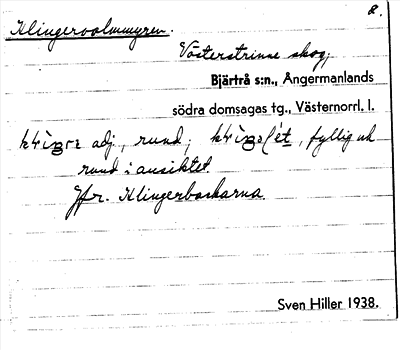 8.
Klingervolmmyren.
Västerstrinne skog,
Bjärtrå s:n., Ångermanlands
södra domsagas tg., Västernorrl. l.
adj., rund; , fyllig och
rund i ansiktet.
Jfr. Klingerbackarna.
Sven Hiller 1938.